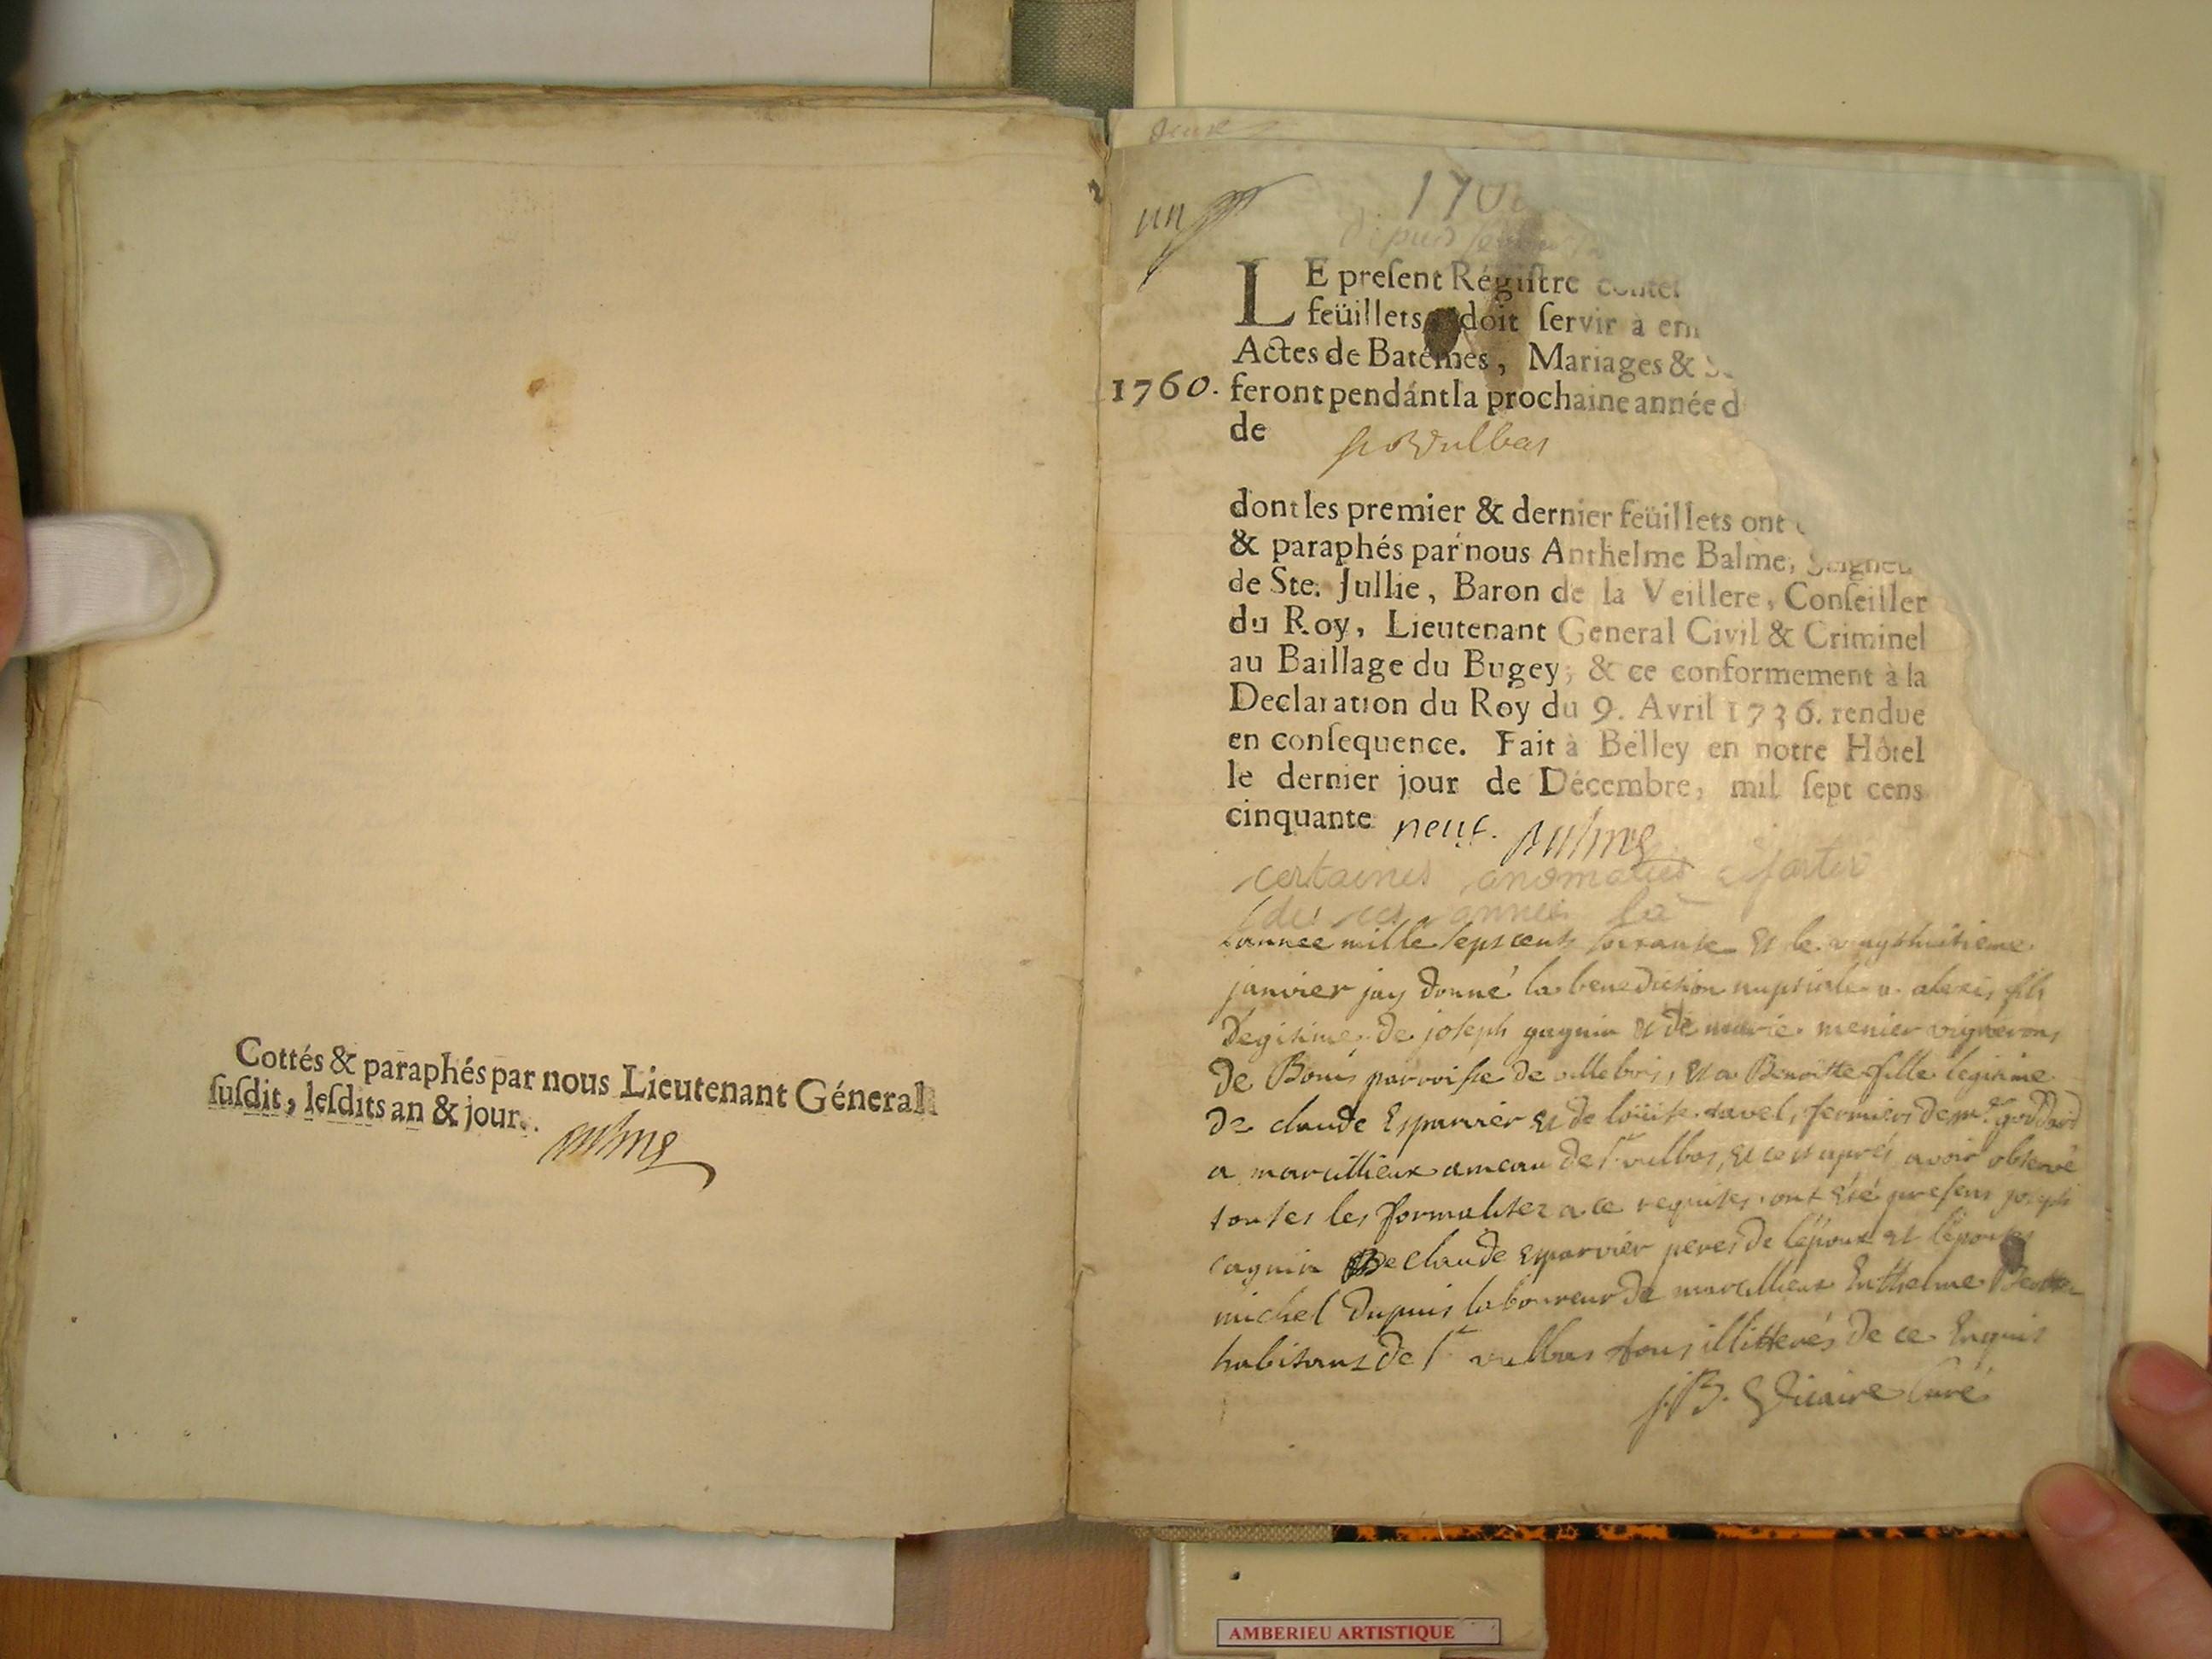 Cottés & paraphés par nous Lieutenant Géneral
ſuſdit, leſdits an & jour.
Balme
un
170
depuis
LE preſent Régiſtre conte
feüillets doit ſervir à em
Actes de Batêmes, Mariages & S
1760. feront pendant la prochaine année d
de St Vulbas
dont les premier & dernier feüillets ont
& paraphés par nous Anthelme Balme, Seigneu
de Ste. Jullie, Baron de la Veillere, Conſeiller
du Roy, Lieutenant General Civil & Criminel
au Baillage du Bugey; & ce conformement à la
Declaration du Roy du 9. Avril 1736. rendue
en conſequence. Fait à Belley en notre Hôtel
le dernier jour de Décembre, mil ſept cens
cinquante neuf. Balme
certaines anomalies à partir
de ces années là
l'année mille sept cent soixante et le vingt huitieme
janvier jay donné la benediction nuptiale a alexis fils
legitime de joseph gagnin et de marie menier vignerons
de Bouis parroisse de villebois, et a Benoitte fille legitime
de claude Esparvier et de loüise ravel, fermiers de mr. goddard
a marcillieux ameau de st vulbas, et ce apres avoir observé
toutes les formalitez a ce requises, ont été presens joseph
cagnin claude esparvier peres de l'époux et l'épouse
michel dupuis laboureur de marcillieux Enthelme
habitans de st vulbas tous illitterés de ce Enquis
j.B. Dicaire Curé
AMBERIEU ARTISTIQUE